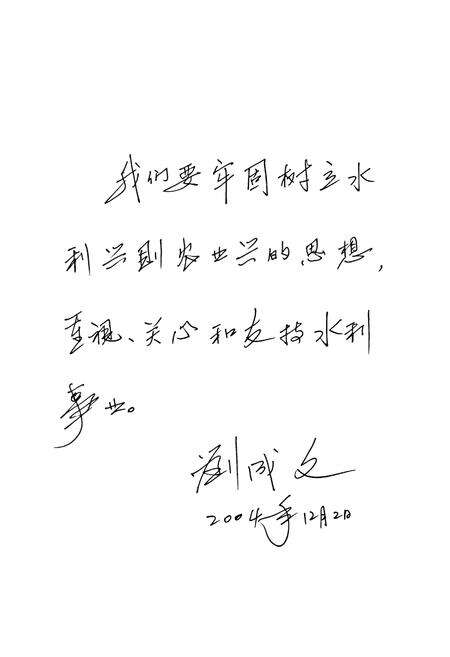 我们要牢固树立水
利兴则农业兴的思想，
重视、关心和支持水利
事业。
劉成文
2004年12月2日